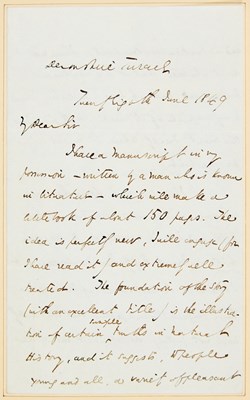 Devonshire Terrace
Twenty Eighth June 1849
My Dear Sir
I have a manuscript in my
possession – written by a man who is known
in literature – which will make a
little book of about 150 pages. The
idea is perfectly new, I will engage (for
I have read it) and extremely well
treated. The foundation of the story
(with an excellent title) is the illustra-
tion of certain simple truths in natural
History, and it suggests, to people
young and old, a variety of pleasant